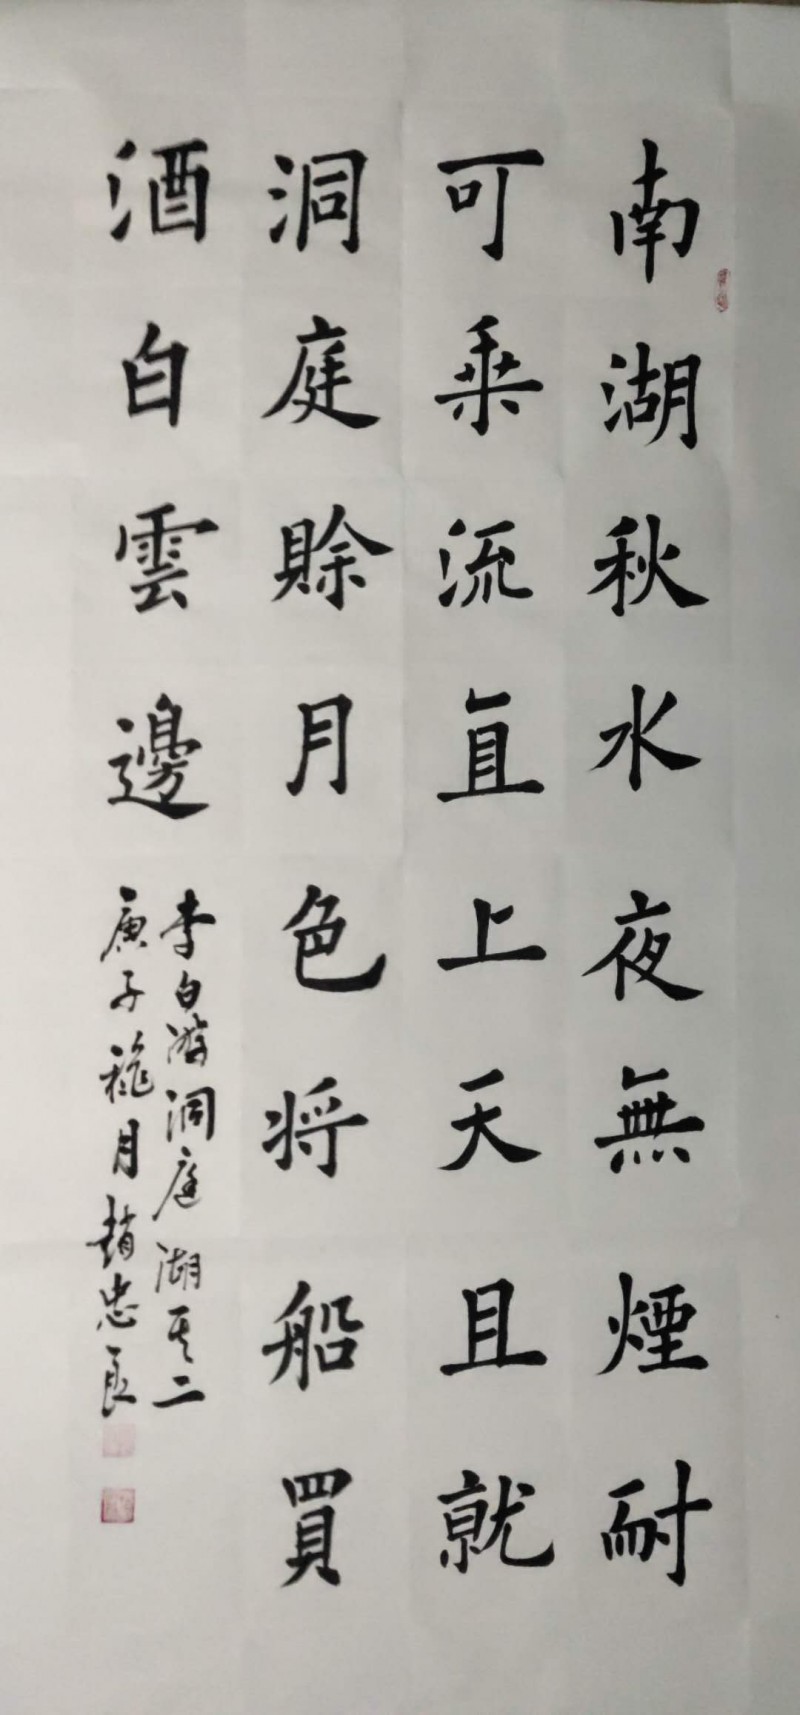 南湖秋水夜無煙耐
可乘流直上天且就
洞庭賒月色将船買
酒白雲邊
李白游洞庭湖其二
庚子穐月趙忠良